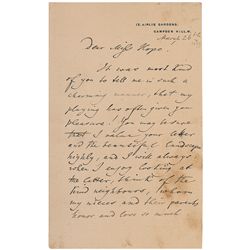 13, AIRLIE GARDENS,
CAMPDEN HILL, W.
March 26th
Dear Miss Hope
It was most kind
of you to tell me in such a
charming manner, that my
playing has often given you
pleasure. You may be sure
that I value your letter
and the beautiful landscape
highly, and I will always
when I enjoy looking at
the latter, think of the
kind neighbours, whom
my nieces and their parents
honor and love so much